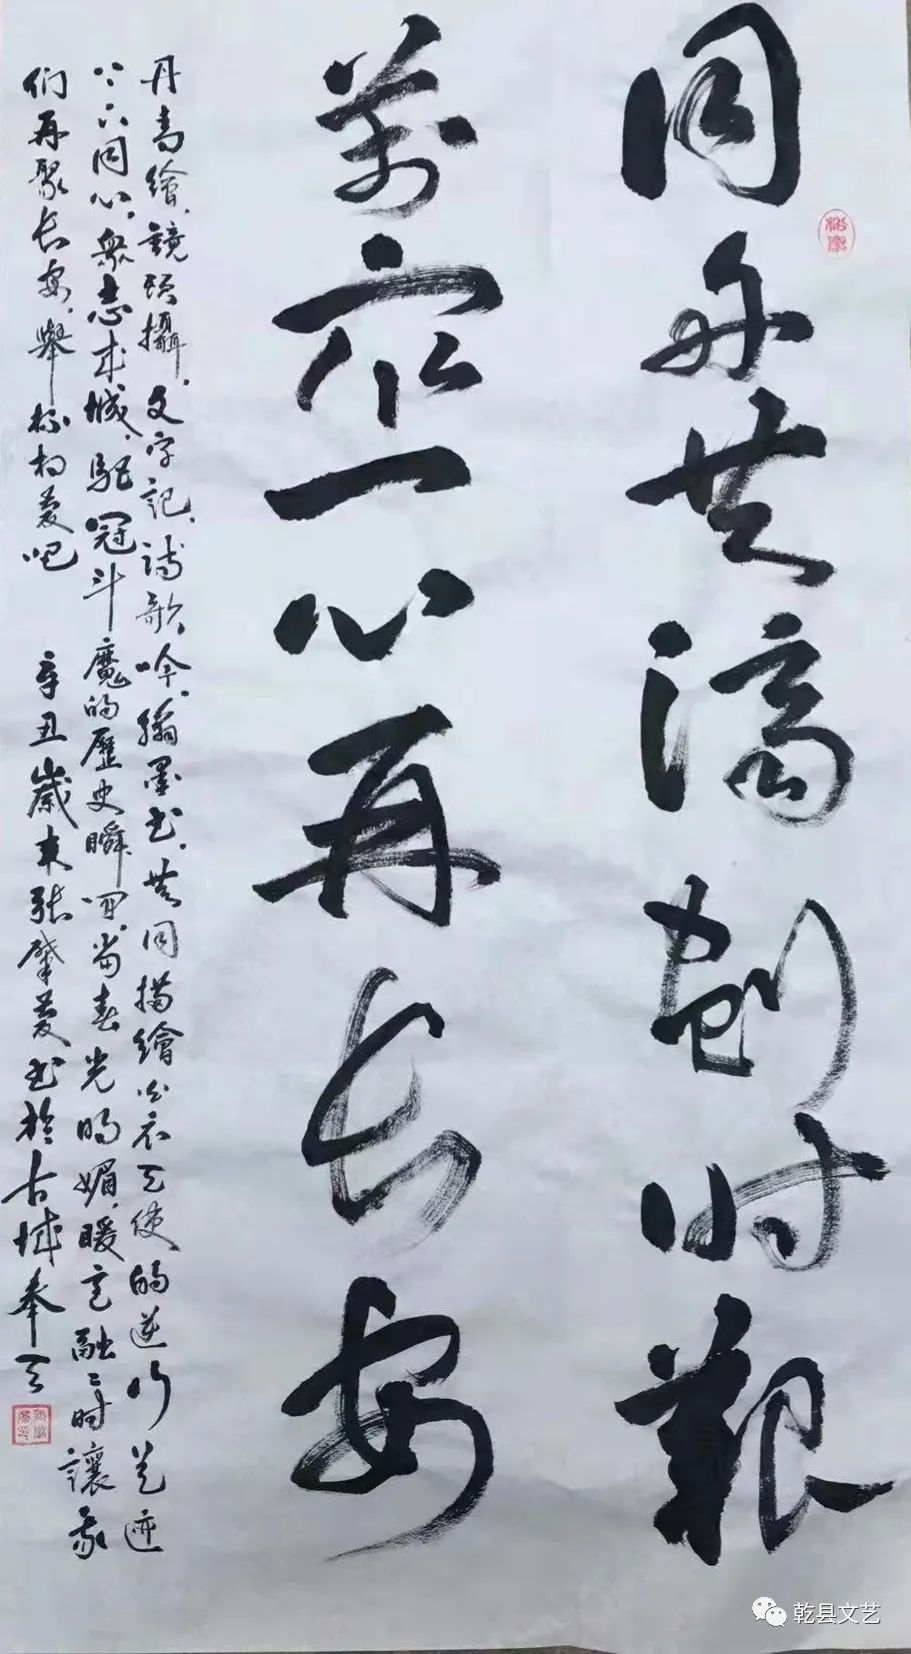 同舟共濟剋时艱
萬眾一心再长安
丹青繪,鏡头攝,文字記,詩歌吟,翰墨书,共同描繪白衣天使的逆行足迹
上下同心,衆志成城,駆冠斗魔的歷史瞬间,当春光明媚,暖意融融时讓我
们再聚长安,舉杯相慶吧 辛丑歲末張肇慶书於古城奉天
乾县文艺